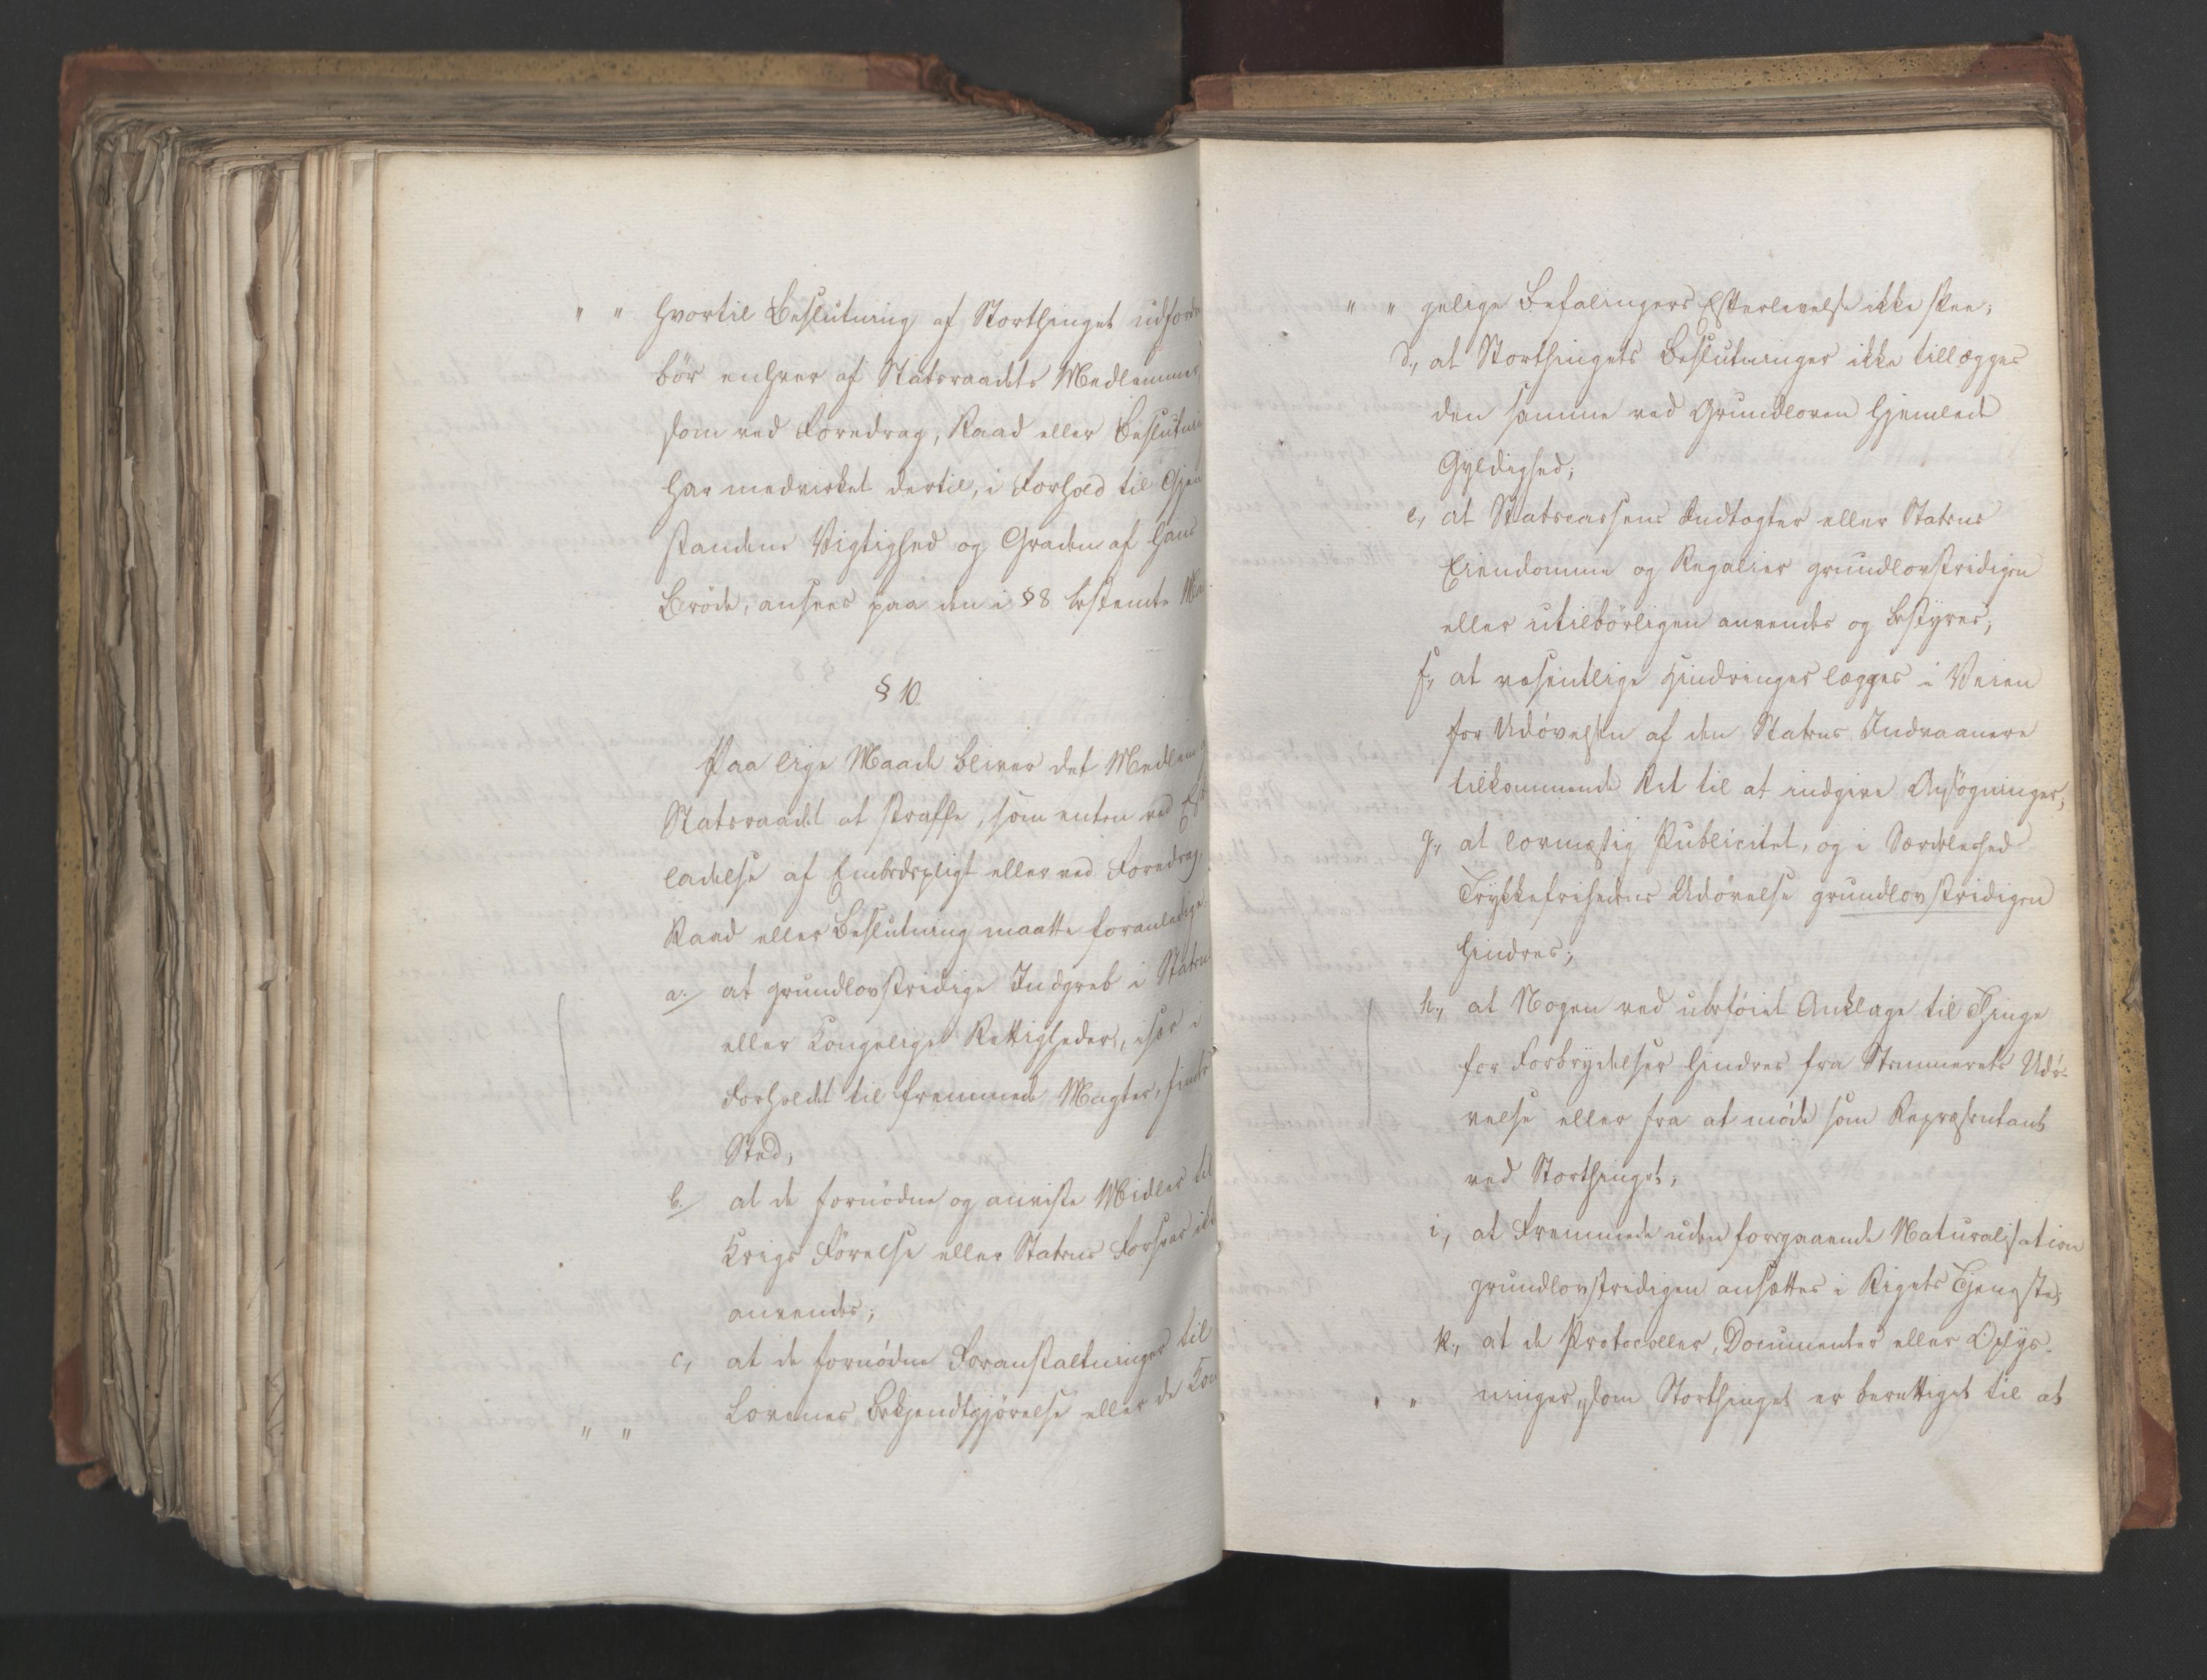 " " hvortil Beslutning af Storthinget udfordre
bör enhver af Statsraadets Medlemmer,
som ved Foredrag, Raad eller Beslutni
har medvirket dertil, i Forhold til Gjen
standens Vigtighed og Graden af hans
Bröde, ansees paa den i § 8 bestemte Ma
§ 10.
Paa lige Maade bliver det Medlem
Statsraadet at straffe, som enten ved Eft
ladelse af Embedspligt eller ved Foredrag,
Raad eller Beslutning maatte foranledige
a./ at grundlovstridige Indgreb i Staten
eller Kongelige Rettigheder, især i
Forholdet til fremmede Magter, finde
Sted,
b./ at de fornödne og anviste Midler til
Krigs Förelse eller Statens Forsvar ikk
anvendes;
c, at de fornödne Foranstaltninger til
" " Lovenes Bekjendtgjörelse eller de Kon
" " gelige Befalingers Efterlevelse ikke skee;
d., at Storthingets Beslutninger ikke tillægges
den samme ved Grundloven hjemlede
Gyldighed;
e., at Statscassens Indtægter eller Statens
Eiendomme og Regalier grundlovstridigen
eller utilbörligen anvendes og bestyres;
f., at væsentlige Hindringer lægges i Veien
for Udövelsen af den Statens Indvaanere
tilkommende Ret til at indgive Ansögninger,
g., at lovmæssig Publicitet, og i Særdeleshed
Trykkefrihedens Udövelse grundlovstridigen
hindres;
h., at Nogen ved ubeföiet Anklage til Thinge
for Forbrydelser hindres fra Stemmerets Udö-
velse eller fra at möde som Repræsentant
ved Storthinget;
i, at Fremmede uden foregaaende Naturalisation
grundlovstridigen ansættes i Rigets Tjeneste;
k., at de Protocoller, Documenter eller Oplys-
" " ninger, som Storthinget er berettiget til at